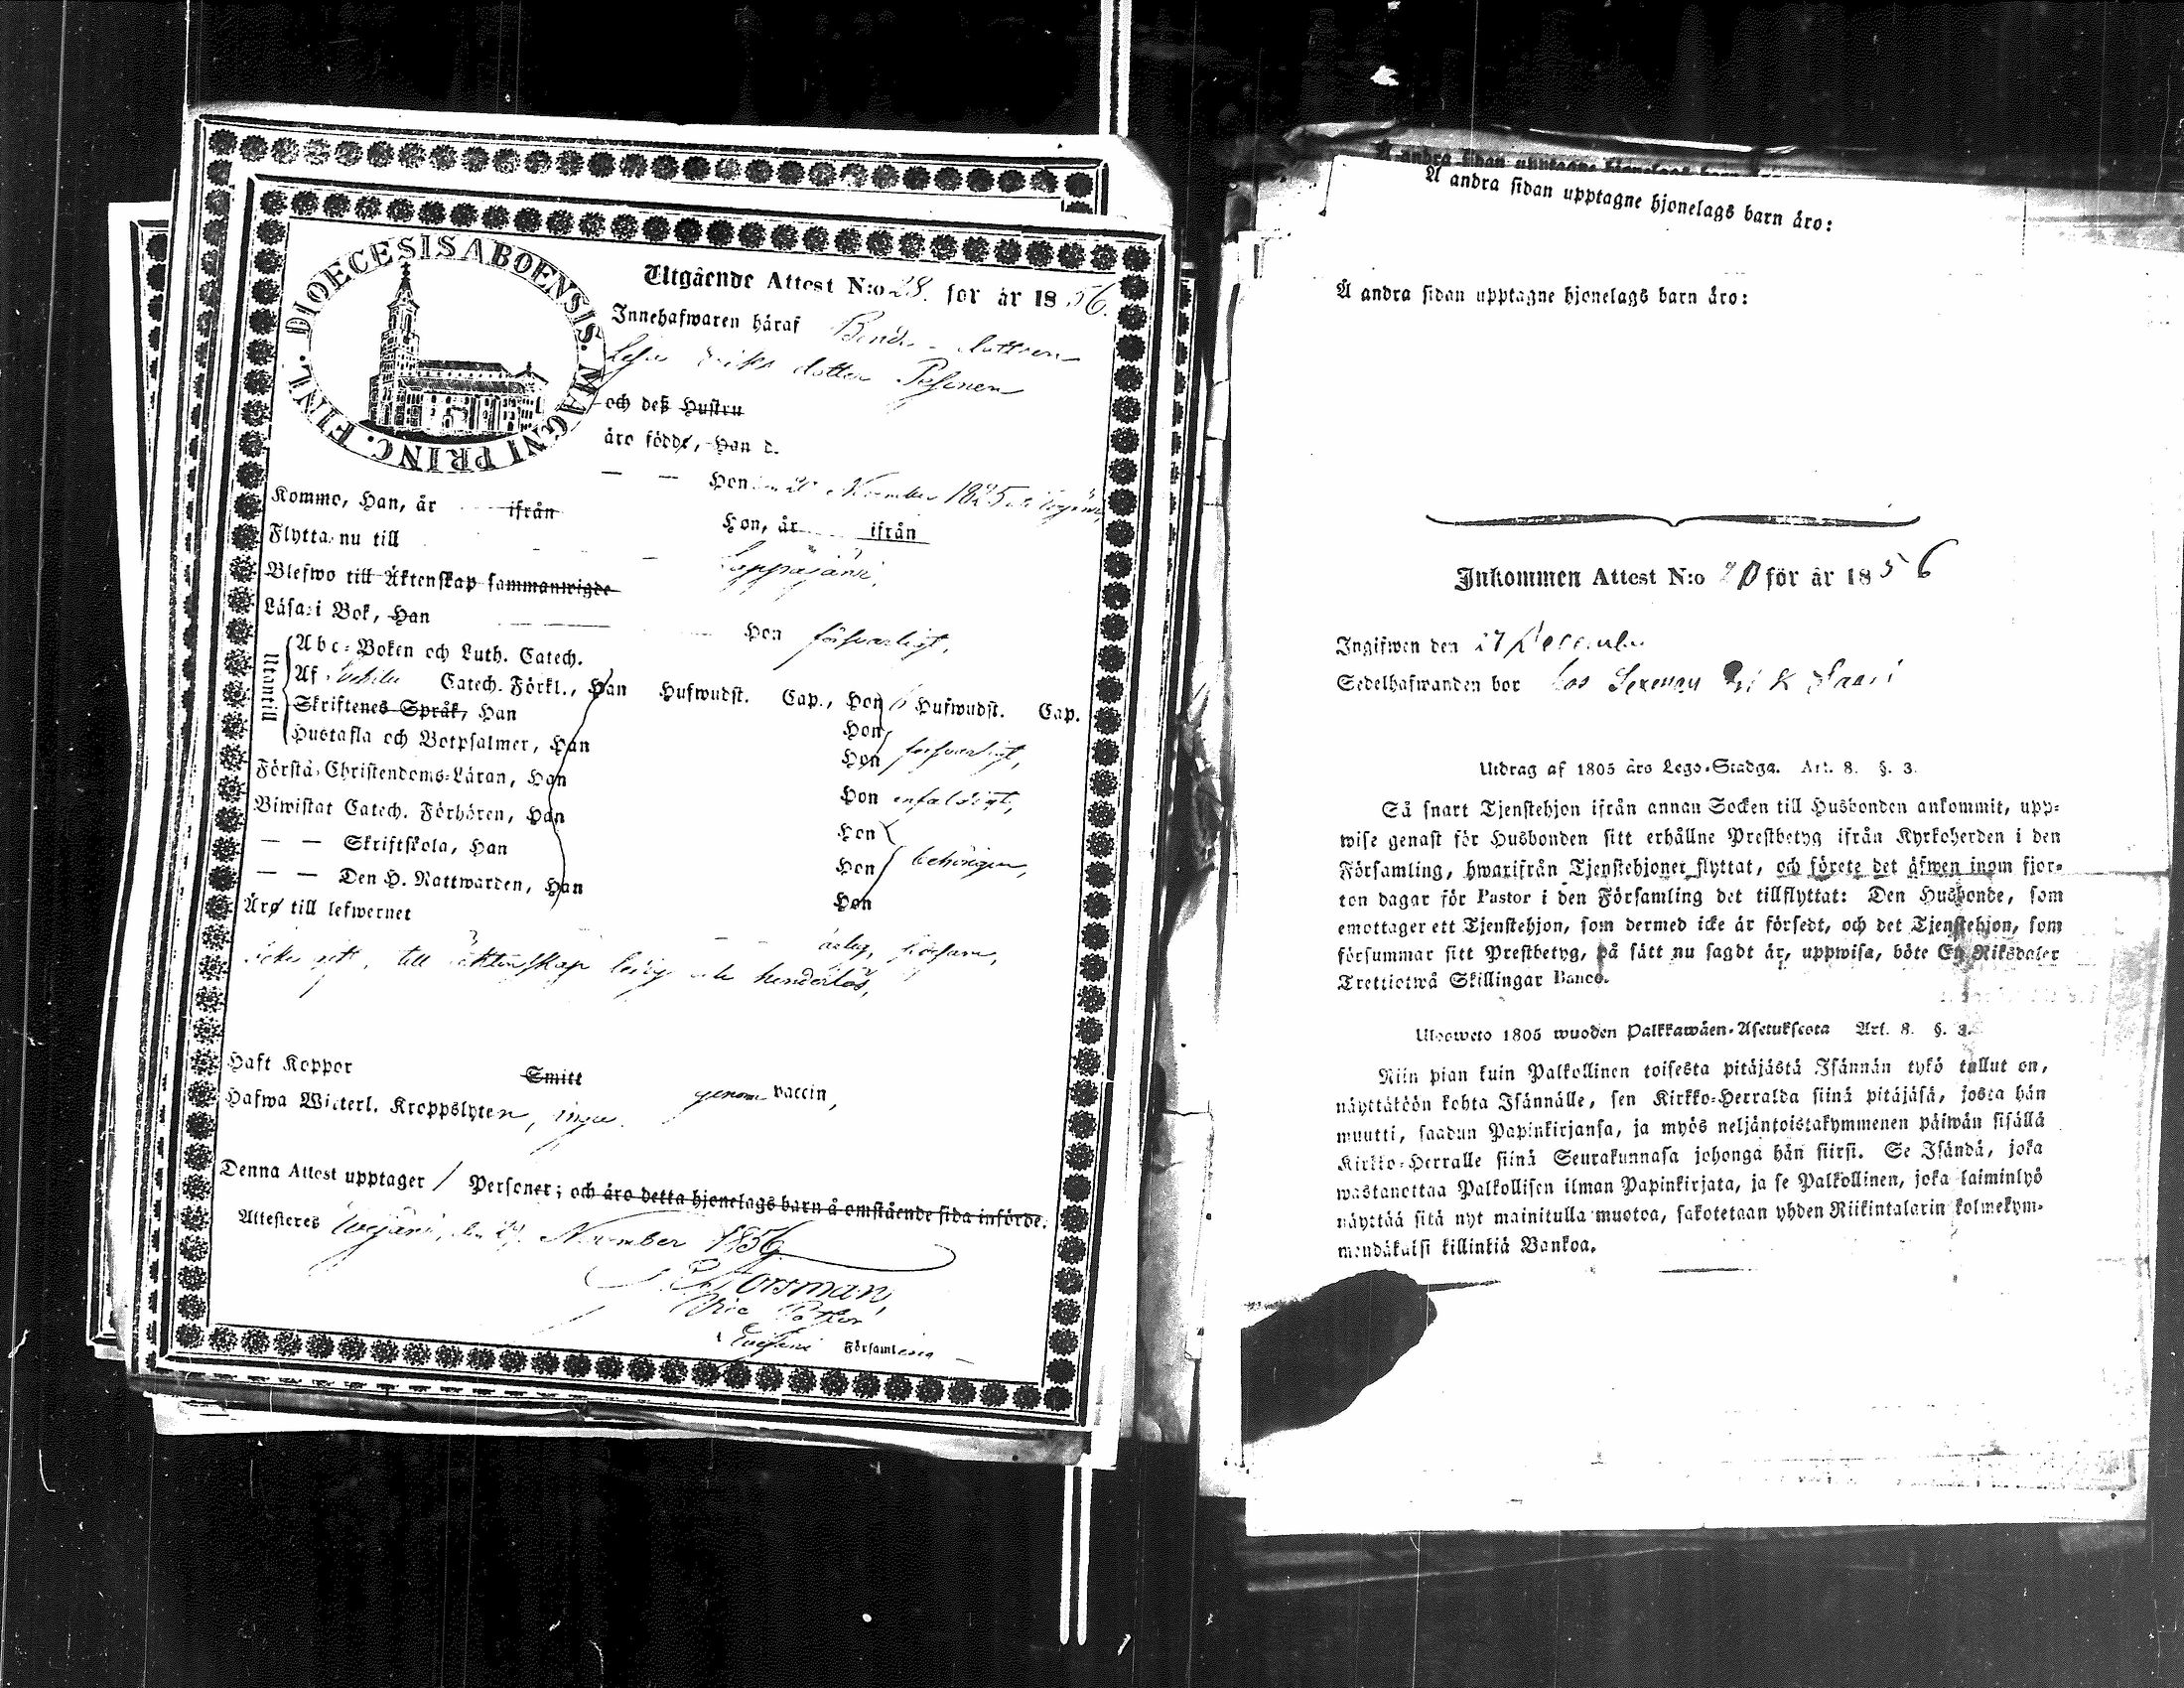 DIOECESIS ABOENSIS. MAGNI PRINC. FINL.
Utgående Attest N:o 28. för år 1856.
Innehafwaren häraf Bonde-dottren
Lisa Eriks dotter Pesonen
och deß Hustru
äro född, Han d.
— — Hon November 1825 i Ewijärvi
Komne, Han, år ifrån Hon, år ifrån
Flytta nu till Lappajärvi.
Blefwo till Äktenskap sammanwigde
Läsa i Bok, Han Hon försvarligt,
Utantill
Abc-Boken och Luth. Catech.
Af Catech. Förkl., Han Hufwudst. Cap., Hon Hufwudst. Cap.
Skriftenes Språk, Han Hon
Hustafla och Botpsalmer, Han Hon försvarligt,
Förstå Christendoms-Läran, Han Hon enfaldigt,
Biwistat Catech. Förhören, Han Hon
— — Skriftskola, Han Hon behörigen,
— — Den H. Nattwarden, Han Hon
Äro till lefwernet ärlig,
till äktenskap ledig och hinderlös,
Haft Koppor Smitt genom vaccin,
Hafwa Wicterl. Kroppslyten, inga.
Denna Attest upptager 1 Personer; och äro detta hjonelags barn å omstående sida införde.
Attesteres Ewijärvi, den November 1856
Forsman,
Vice Pastor
i Ewijärvi Församling
Å andra sidan upptagne hjonelags barn äro:
Å andra sidan upptagne hjonelags barn äro:
Å andra sidan upptagne hjonelags barn äro:
Inkommen Attest N:o 20 för år 1856
Ingifwen den 27 December
Sedelhafwanden bor hos Saari
Utdrag af 1805 års Lego-Stadga. Art. 8. §. 3.
Så snart Tjenstehjon ifrån annan Socken till Husbonden ankommit, upp-
wise genast för Husbonden sitt erhållne Prestbetyg ifrån Kyrkoherden i den
Församling, hwarifrån Tjenstehjonet flyttat, och förete det äfwen inom fjor-
ton dagar för Pastor i den Församling det tillflyttat: Den Husbonde, som
emottager ett Tjenstehjon, som dermed icke är försedt, och det Tjenstehjon, som
försummar sitt Prestbetyg, på sätt nu sagdt är, uppwisa, böte En Riksdaler
Trettiotwå Skillingar Banco.
Ulosweto 1805 wuoden Palkkawäen-Asetuksesta Art. 8. §. 3.
Niin pian kuin Palkollinen toisesta pitäjästä Isännän tykö tullut on,
näyttätöön kohta Isännälle, sen Kirkko-Herralda siinä pitäjäsä, josta hän
muutti, saadun Papinkirjansa, ja myös neljäntoistakymmenen päiwän sisällä
Kirkko-Herralle siinä Seurakunnasa johonga hän siirsi. Se Isändä, joka
wastanottaa Palkollisen ilman Papinkirjata, ja se Palkollinen, joka laiminlyö
näyttää sitä nyt mainitulla muotoa, sakotetaan yhden Riikintalarin kolmekym-
mendäkaksi killinkiä Bankoa.